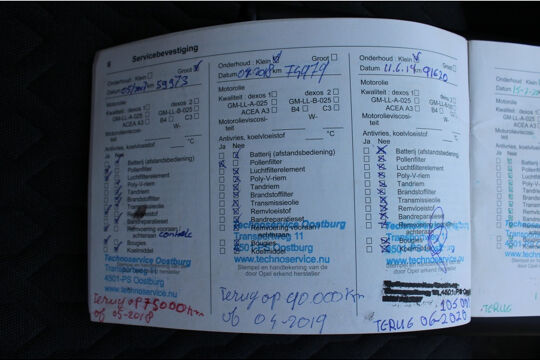 6 Servicebevestiging
Onderhoud : Klein Groot
Datum 05/2017 km 59973
Motorolie
Kwaliteit : dexos 1 dexos 2
GM-LL-A-025 GM-LL-B-025
ACEA A3 B4 C3
Motorolieviscosi-
teit W-
Antivries, koelvloeistof
°C
Ja Nee
Batterij (afstandsbediening)
Pollenfilter
Luchtfilterelement
Poly-V-riem
Tandriem
Brandstoffilter
Transmissieolie
Remvloeistof
Bandreparatieset
Remvoering vooraan /
achteraan controle
Bougies
Koelmiddel
Technoservice Oostburg
Transportweg 11
4501-PS Oostburg
www.technoservice.nu
Terug op 75000 km
of 05-2018
Onderhoud : Klein Groot
Datum km
Motorolie
Kwaliteit : dexos 1 dexos 2
GM-LL-A-025 GM-LL-B-025
ACEA A3 B4 C3
Motorolieviscosi-
teit W-
Antivries, koelvloeistof
°C
Ja Nee
Batterij (afstandsbediening)
Pollenfilter
Luchtfilterelement
Poly-V-riem
Tandriem
Brandstoffilter
Transmissieolie
Remvloeistof
Bandreparatieset
Remvoering vooraan /
achteraan
Bougies
Koelmiddel
Technoservice Oostburg
Transportweg 11
4501-PS Oostburg
www.technoservice.nu
Stempel en handtekening van de
door Opel erkend hersteller
Terug op 90.000 km
of 04-2019
Onderhoud : Klein Groot
Datum km 91620
Motorolie
Kwaliteit : dexos 1 dexos 2
GM-LL-A-025 GM-LL-B-025
ACEA A3 B4 C3
Motorolieviscosi-
teit W-
Antivries, koelvloeistof
°C
Ja Nee
Batterij (afstandsbediening)
Pollenfilter
Luchtfilterelement
Poly-V-riem
Tandriem
Brandstoffilter
Transmissieolie
Remvloeistof
Bandreparatieset
Remvoering vooraan /
achteraan
Bougies
Koelmiddel
Technoservice Oostburg
Transportweg 11
4501-PS Oostburg
www.technoservice.nu
Stempel en handtekening van de
door Opel erkend hersteller
TERUG 06-2020
Onderhoud
Datum
Motorolie
Kwaliteit
Ja Nee
TERUG